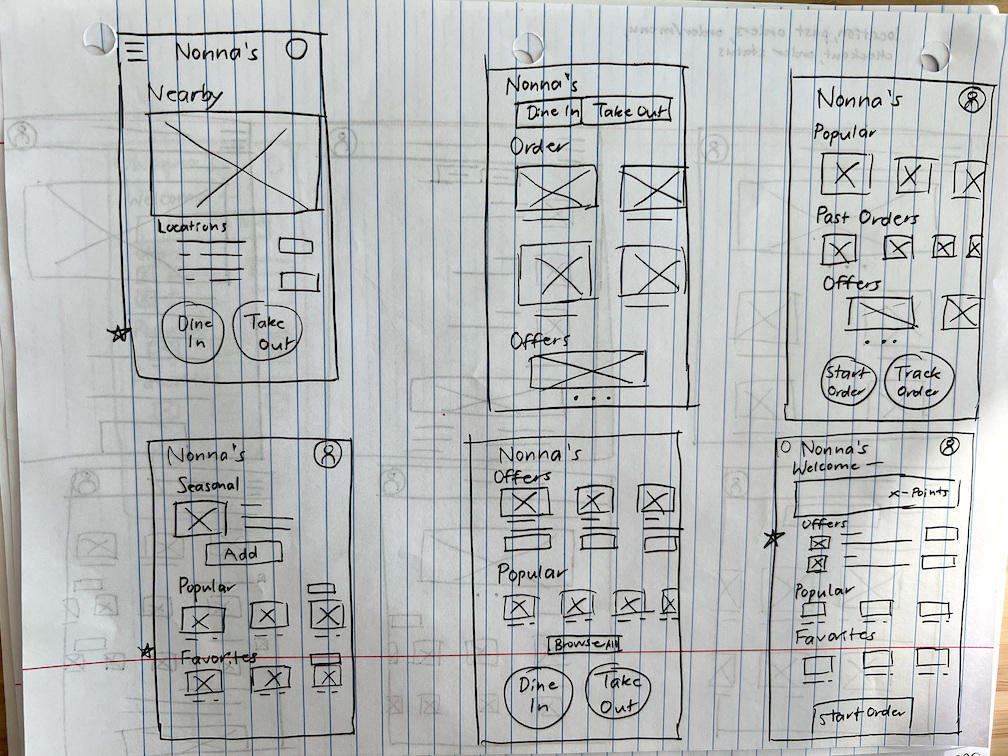 Nonna's
Nearby
Locations
Dine In
Take Out
Nonna's
Dine In
Take Out
Order
Offers
Nonna's
Popular
Past Orders
Offers
Start Order
Track Order
Nonna's
Seasonal
Add
Popular
Favorites
Nonna's
Offers
Popular
Browse All
Dine In
Take Out
Nonna's
Welcome —
x-Points
Offers
Popular
Favorites
Start Order
location, past orders, order/menu,
checkout, order status